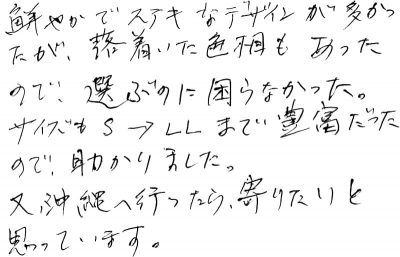 鮮やかでステキなデザインが多かっ
たが、落着いた色相もあった
ので、選ぶのに困らなかった。
サイズもS→LLまで豊富だった
ので、助かりました。
又、沖縄へ行ったら、寄りたいと
思っています。